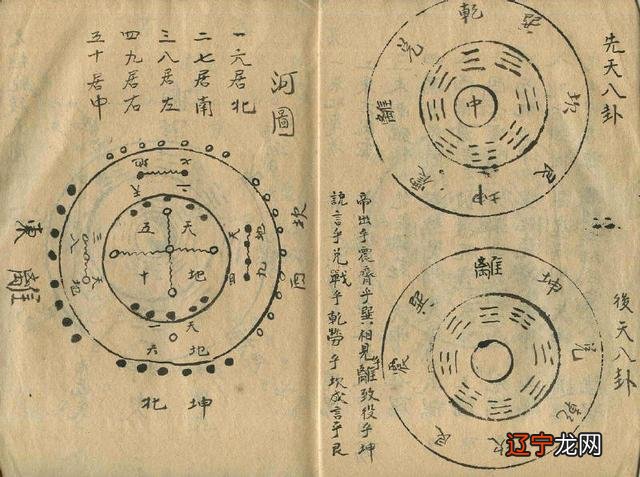 先天八卦
乾
巽
坎
艮
坤
震
離
兌
中
後天八卦
離
坤
兌
乾
坎
艮
震
巽
帝出乎震齊乎巽相見乎離致役乎坤
說言乎兌戰乎乾勞乎坎成言乎艮
河圖
一六居北
二七居南
三八居左
四九居右
五十居中
地七
天二
坎西
地九
天四
天五
地十
天三
地八
東離
天一
地六
坤北
辽宁龙网